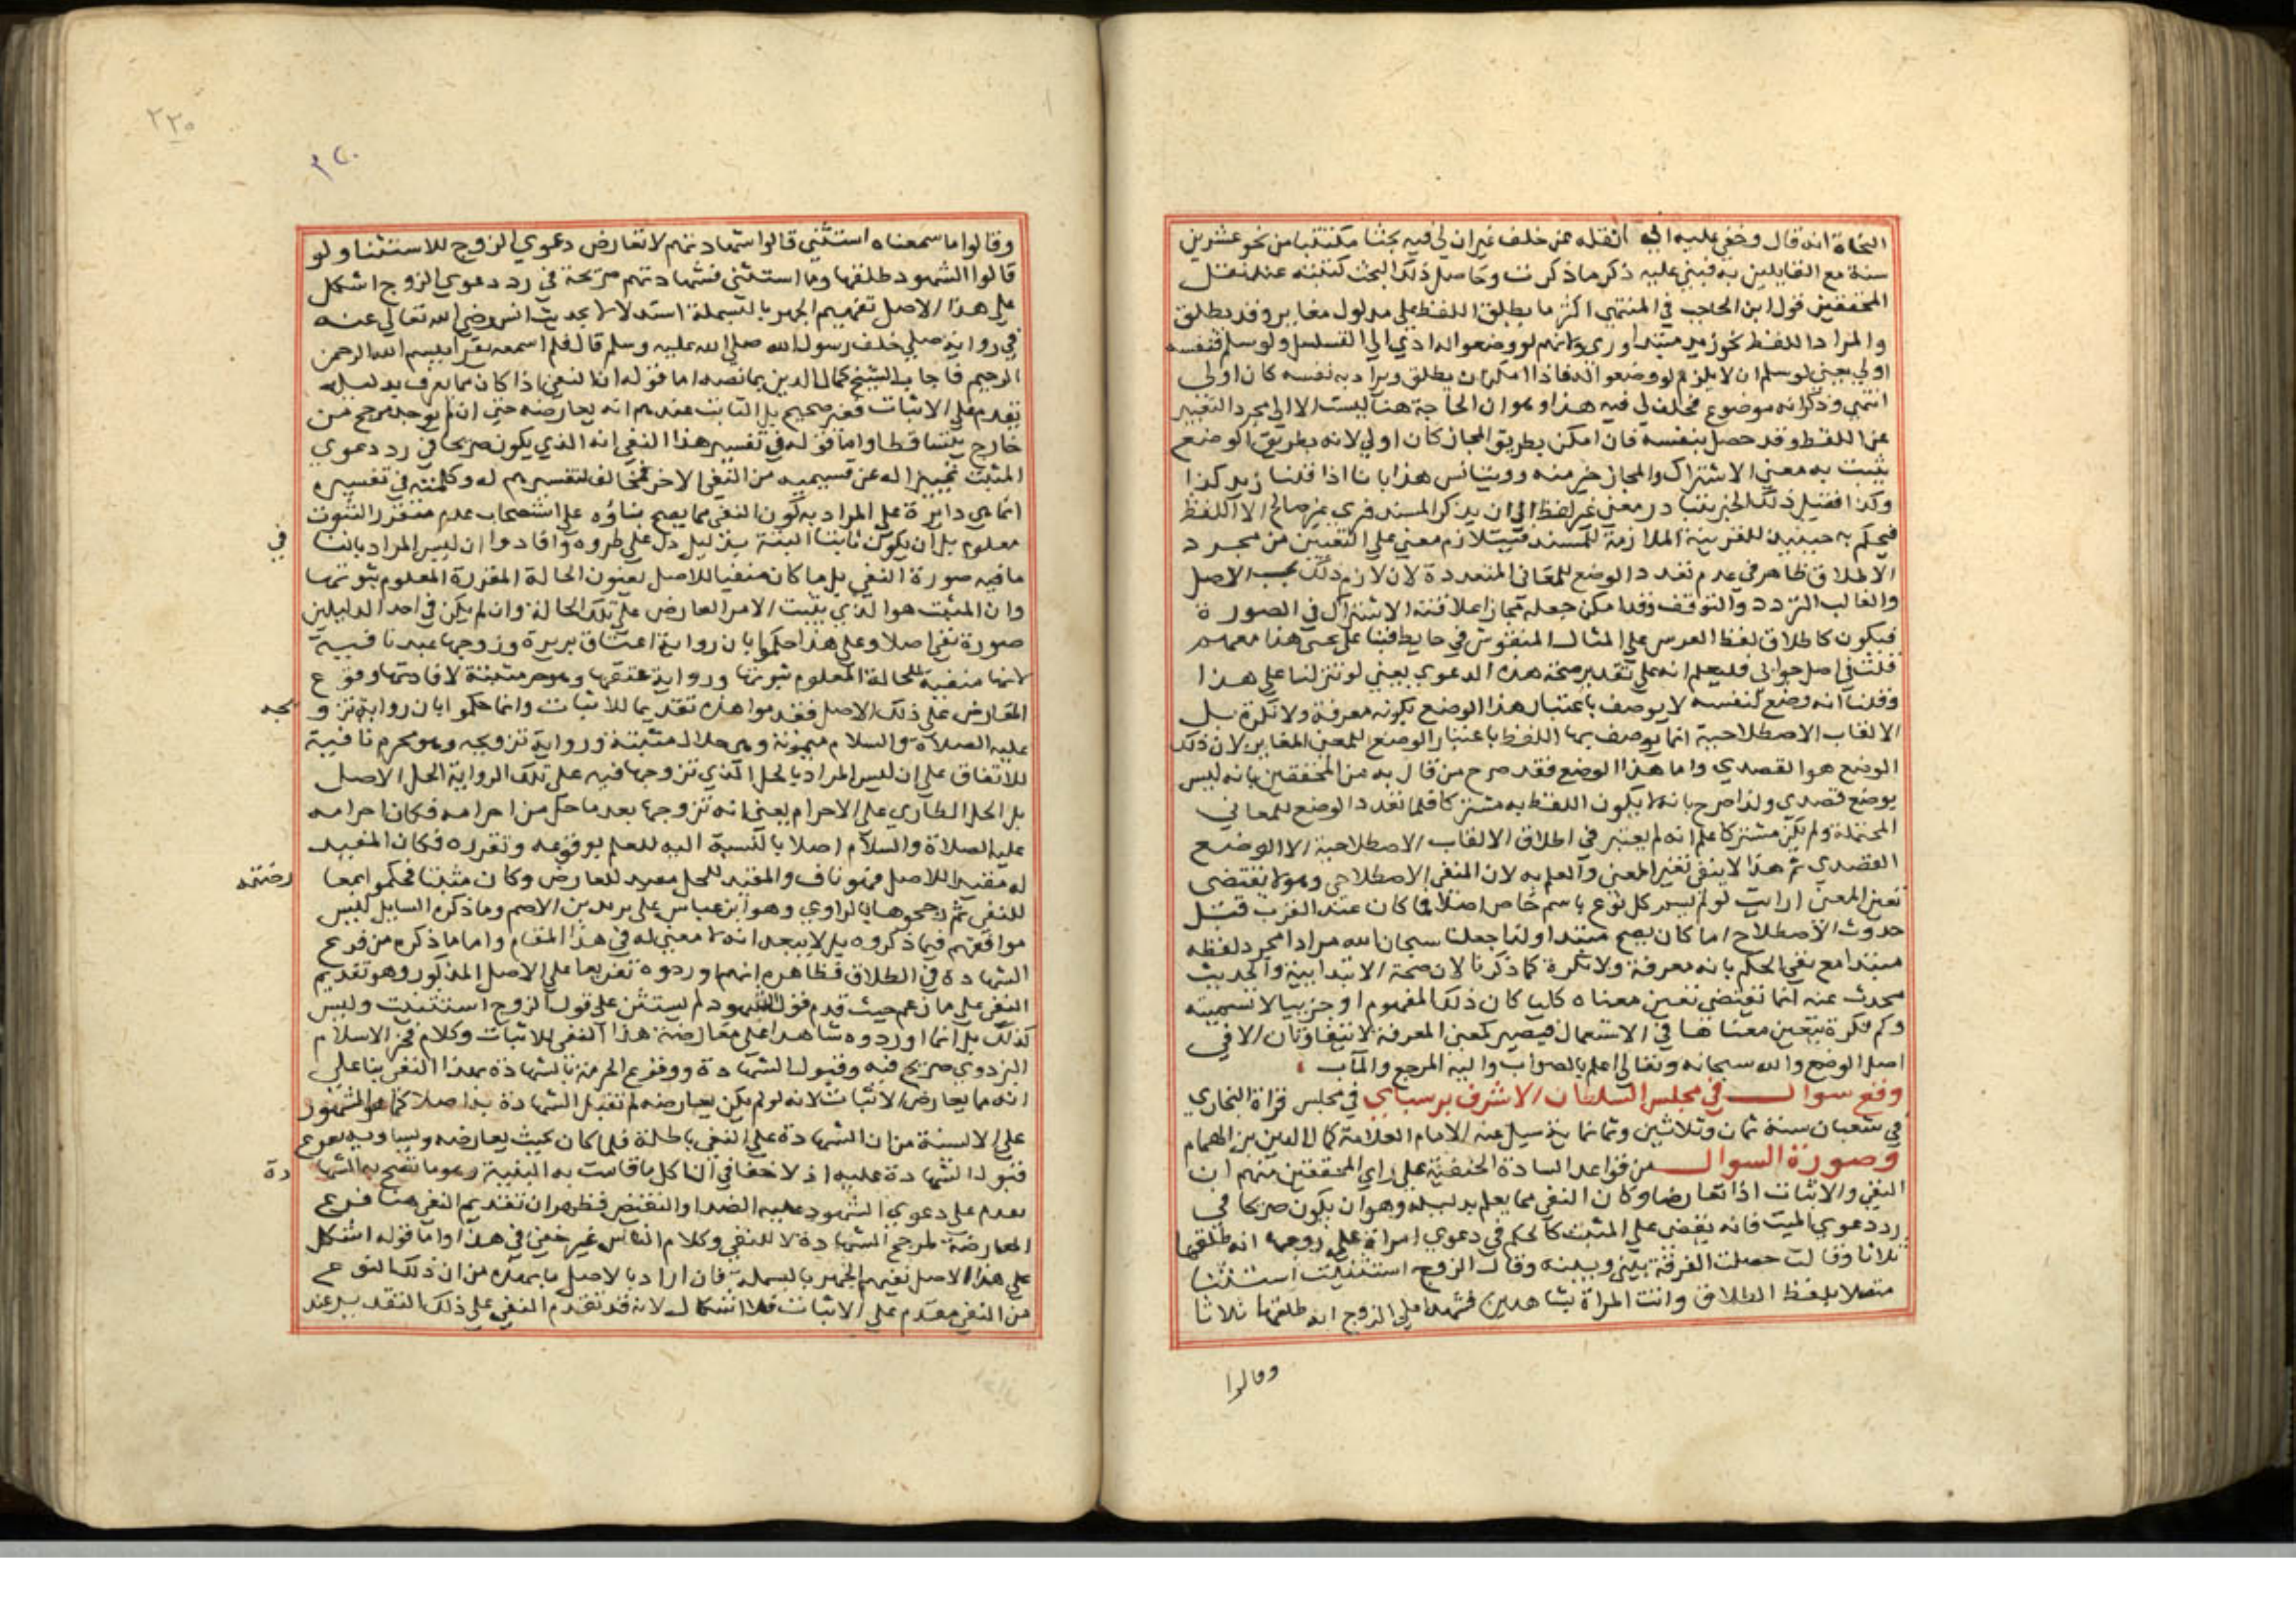 النحاة انه قال وخفي عليه انه نقله عن خلف غير ان لي فيه بحثا مكتتبا من نحو عشرين
سنة مع القايلين به فبني عليه ذكر ما ذكرت وحاصل ذلك البحث كتبته عند نقل
المحققين قول ابن الحاجب في المنتهى اكثر ما يطلق اللفظ على مدلول مغاير وقد يطلق
والمراد اللفظ نحو زيد مبتدا وزي د لانهم لو وضعوا له ادي الى التسلسل ولو سلم فنفسه
اولى يعني لو سلم ان لا يلزم لو وضعوا له فاذا امكن ان يطلق ويراد به نفسه كان اولى
انتهى وذكر انه موضوع فخلف لي فيه هذا وهو ان الحاجة هنا ليست الا الى مجرد التعبير
عن اللفظ وقد حصل بنفسه فان امكن بطريق المجاز كان اولى لانه بطريق الوضع
يثبت به معنى الاشتراك والمجاز خير منه ورويتانس هذا بانا اذا قلنا زيد كذا
وكذا فقبل ذلك الخبر يتبادر معنى غير لفظ الى ان يذكر المسند فري غير صالح الا اللفظ
فيحكم به حينيذ للقرينة الملازمة للمسند فتلازم معنى على التعيين من مجرد
الاطلاق ظاهر في عدم تعدد الوضع للمعاني المتعددة لان لازم ذلك بحسب الاصل
والغالب التردد والتوقف وقد امكن جعله مجازا علاقته الاشتراك في الصورة
فيكون كاطلاق لفظ الفرس على المثال المنقوش في حايط فبنا على بحثي هذا معهم
قلت في اصل جوابي فليعلم انه على تقدير صحة هذه الدعوي يعني لو تنزلنا على هذا
وقلنا انه وضع لنفسه لا يوصف باعتبار هذا الوضع بكونه معرفة ولا نكرة بل
الالقاب الاصطلاحية انما يوصف بها اللفظ باعتبار الوضع للمعنى المغاير لان ذلك
الوضع هو القصدي واما هذا الوضع فقد صرح من قال به من المحققين بانه ليس
بوضع قصدي ولذا صرح بانه لا يكون اللفظ به مشتركا فلما تعدد الوضع للمعاني
المحتملة ولم يكن مشتركا علم انه لم يعتبر في اطلاق الالقاب الاصطلاحية الا الوضع
القصدي ثم هذا لا ينفي تعين المعنى والعلم به لان المنفي الاصطلاحي وهو لا يقتضي
تعين المعنى ارايت لو لم يسم كل نوع باسم خاص اصلا كما كان عند العرب قبل
حدوث الاصطلاح اما كان يصح مبتدا ولذا جعلنا سبحان الله مرادا مجرد لفظه
مبتدا مع نفي الحكم بانه معرفة ولا نكرة كما ذكرنا لان صحة الابتدايية والحديث
محدث عنه انما تقتضي تعين معناه كليا كان ذلك المفهوم او جزييا لا تسميته
وكم نكرة يتعين معناها في الاستعمال فيصير كمعنى المعرفة لا يتفاوتان الا في
اصل الوضع والله سبحانه وتعالى اعلم بالصواب واليه المرجع والمآب
وقع سوال في مجلس السلطان الاشرف برسباي في مجلس قراة البخاري
في شعبان سنة ثمان وثلاثين وثمانماية سيل عنه الامام العلامة كمال الدين بن الهمام
وصورة السوال من قواعد السادة الحنفية على راي المحققين منهم ان
النفي والاثبات اذا تعارضا وكان النفي مما يعلم بدليله وهو ان يكون صريحا في
رد دعوي المثبت فانه يقضي على المثبت كالحكم في دعوي امراة على زوجها انه طلقها
ثلاثا وقالت حصلت الفرقة بيني وبينه وقال الزوج استثنيت استثنا
متصلا بلفظ الطلاق واتت المراة بشاهدين فشهدا على الزوج انه طلقها ثلاثا
وقالوا
٢٢٠
وقالوا ما سمعناه استثنى قالوا شهادتهم لا تعارض دعوي الزوج للاستثنا ولو
قالوا الشهود طلقها وما استثنى فشهادتهم صريحة في رد دعوي الزوج اشكل
على هذا الاصل نفيهم الجهر بالبسملة استدلالا بحديث انس رضي الله تعالى عنه
في رواية صلى خلف رسول الله صلى الله عليه وسلم قال فلم اسمعه يقرا ببسم الله الرحمن
الرحيم فاجاب الشيخ كمال الدين بما نصه اما قوله ان النفي اذا كان مما يعرف بدليله
يقدم على الاثبات فغير صحيح بل الثابت عندهم انه يعارضه حتى ان لم يوجد مرجح من
خارج يتساقطا واما قوله في تفسير هذا النفي انه الذي يكون صريحا في رد دعوي
المثبت تمييزا له عن قسيميه من النفي الاخر فمخالف لتفسيرهم له وكلمته في تفسيره
انما هي دايرة على المراد به كون النفي مما يصح بناؤه على استصحاب عدم متقرر الثبوت
معلوم بل ان يكون ثابتا البتة بدليل دل على طروه وافادوا ان ليس المراد بالنا في
ما فيه صورة النفي بل ما كان منفيا للاصل يعنون الحالة المقررة المعلوم ثبوتها
وان المثبت هو الذي يثبت الامر العارض على تلك الحالة وان لم يكن في احد الدليلين
صورة نفي اصلا وعلى هذا حكموا بان رواية اعتاق بريرة وزوجها عبد نافية
لانها منفية للحالة المعلوم ثبوتها ورواية عتقها وهو حر مثبتة لافادتها وقوع
العارض على ذلك الاصل فقدموا هذه تقديما للاثبات وانما حكموا بان رواية تزو يجه
عليه الصلاة والسلام ميمونة وهو حلال مثبتة ورواية تزويجه وهو محرم نافية
للاتفاق على ان ليس المراد بالحل الذي تزوجها فيه على تلك الرواية الحل الاصل
بل الحل الطاري على الاحرام يعني انه تزوجها بعد ما حل من احرامه فكان احرامه
عليه الصلاة والسلام اصلا بالنسبة اليه للعلم بوقوعه وتقرره فكان المفيد
له مفيد اللاصل فهو ناف والمفيد للحل مفيد للعارض وكان مثبتا فحكموا بمعا رضته
للنفي ثم رجحوها بالراوي وهو ابن عباس على يزيد بن الاصم وما ذكره السايل ليس
موافقهم فيما ذكروه بل لا يبعد انه لا معنى له في هذا المقام واما ما ذكره من فرع
الشهادة في الطلاق فظاهره انهم اوردوه تفريعا على الاصل المذكور وهو تقديم
النفي على ما زعم حيث قدم قول الشهود لم يستثن على قول الزوج استثنيت وليس
كذلك بل انما اوردوه شاهدا على معارضة هذا النفي للاثبات وكلام فخر الاسلام
البزدوي صريح فيه وقبول الشهادة ووقوع الحرمة بالشهادة بهذا النفي بنا على
انه مما يعارض الاثبات لانه لو لم يكن يعارضه لم تقبل الشهادة به اصلا كما هو المشهور
على الالسنة من ان الشهادة على النفي باطلة فلما كان بحيث يعارضه ويساويه نوع
قبول الشهادة عليه اذ لا خفا في ان كل ما قامت به البينة وهو ما تصح به الشها دة
يقدم على دعوي الشهود عليه الضد او النقيض فظهر ان تقديم النفي هنا فرع
المعارضة لمرجح الشهادة لا للنفي وكلام الناس غير خفي في هذا واما قوله اشكل
على هذا الاصل نفيهم الجهر بالبسملة فان اراد بالاصل ما مهده من ان ذلك النوع
من النفي مقدم على الاثبات فلا اشكال لانه قد تقدم النفي على ذلك التقدير عند